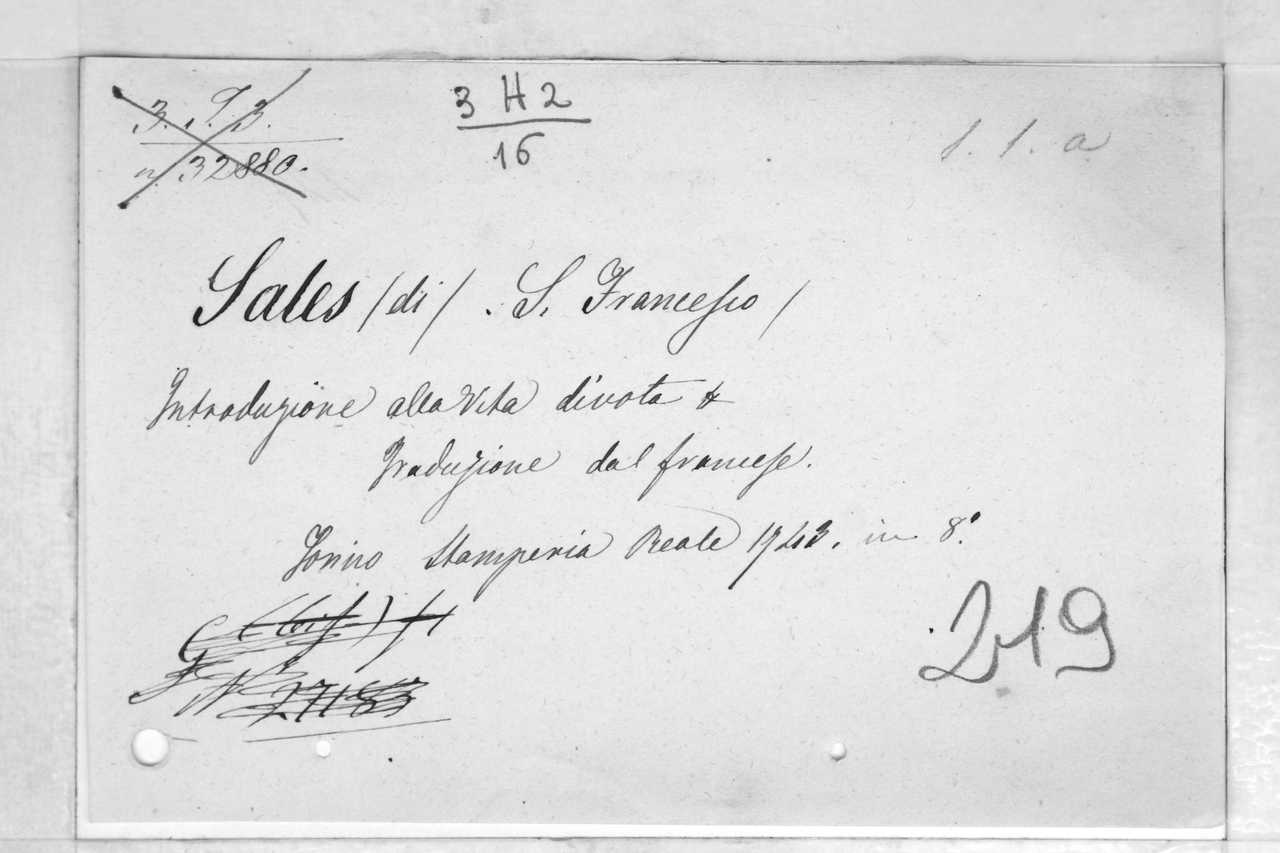 3. 9. 3.
n. 32880.
3 H 2
16
1. 1. a
Sales /di/ . S. Francesco /
Introduzione alla Vita divota &
Traduzione dal francese.
Torino Stamperia Reale 1743. in 8°.
(bis)
N° 27183
219